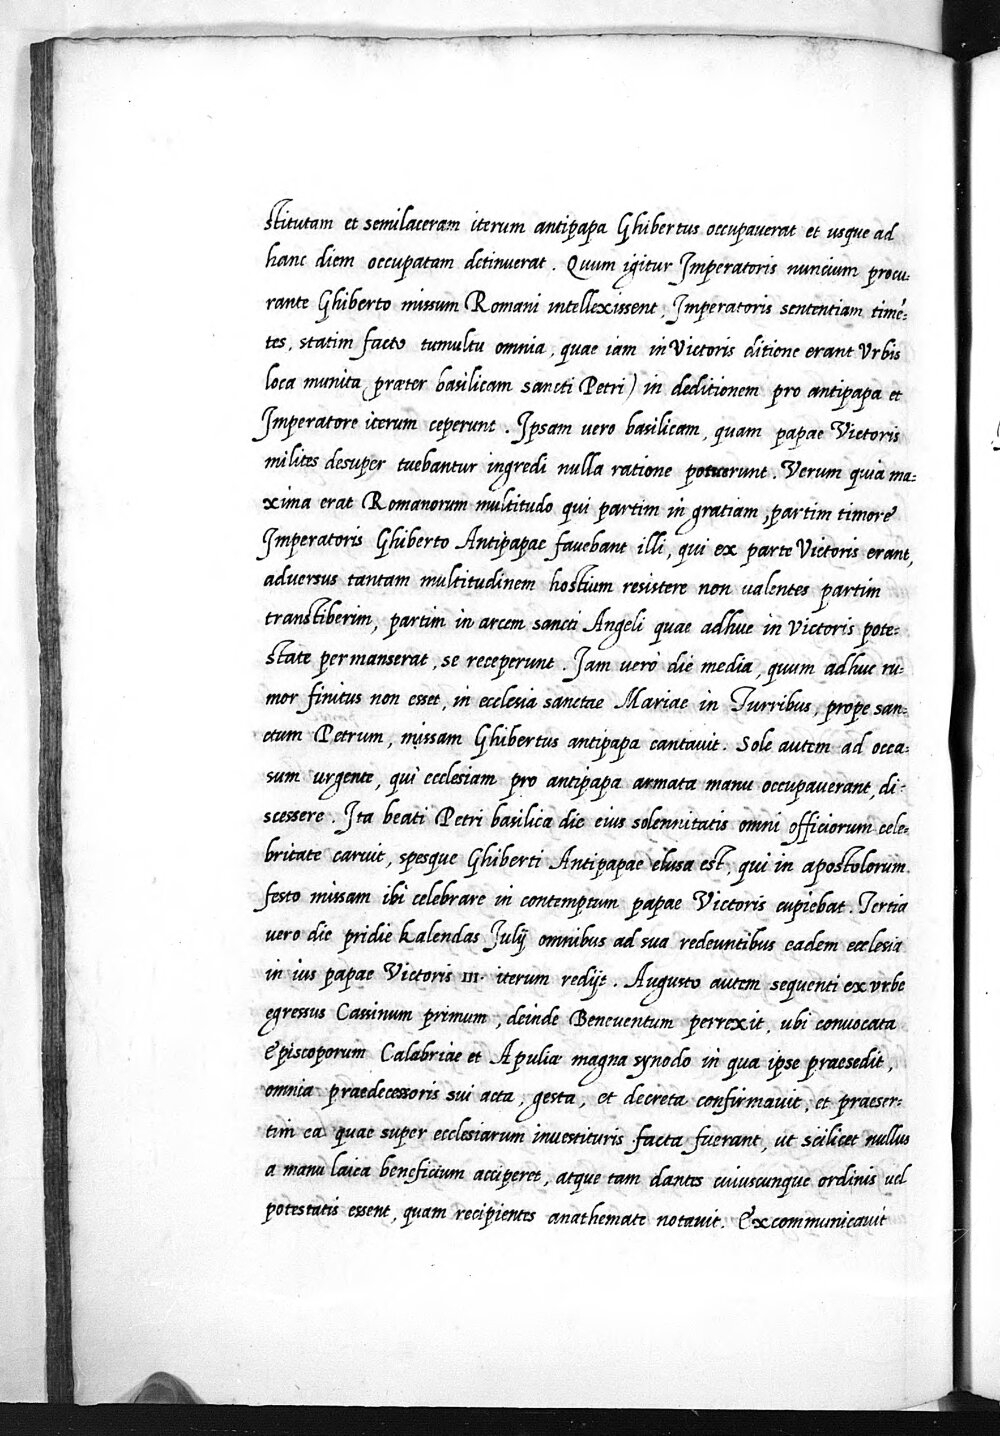 stitutam et semilaceram iterum antipapa Ghibertus occupaverat et usque ad
hanc diem occupatam detinuerat. Quum igitur Imperatoris nuncium procu:
rante Ghiberto missum Romani intellexissent, Imperatoris sententiam timē:
tes, statim facto tumultu omnia, quae iam in Victoris ditione erant Vrbis
loca munita praeter basilicam sancti Petri) in deditionem pro antipapa et
Imperatore iterum ceperunt. Ipsam uero basilicam, quam papae Victoris
milites desuper tuebantur ingredi nulla ratione potuerunt. Verum quia ma:
xima erat Romanorum multitudo qui partim in gratiam, partim timore
Imperatoris Ghiberto Antipapae fauebant illi, qui ex parte Victoris erant,
adversus tantam multitudinem hostium resistere non ualentes partim
transtiberim, partim in arcem sancti Angeli quae adhuc in Victoris pote:
state permanserat, se receperunt. Iam uero die media, quum adhuc ru:
mor finitus non esset, in ecclesia sanctae Mariae in Turribus, prope san:
ctum Petrum, missam Ghibertus antipapa cantauit. Sole autem ad occa:
sum urgente, qui ecclesiam pro antipapa armata manu occupauerant, di:
scessere. Ita beati Petri basilica die eius solennitatis omni officiorum cele:
britate caruit, spesque Ghiberti Antipapae elusa est, qui in apostolorum
festo missam ibi celebrare in contemptum papae Victoris cupiebat. Tertia
uero die pridie kalendas Julij omnibus ad sua redeuntibus eadem ecclesia
in ius papae Victoris III. iterum redijt. Augusto autem sequenti ex vrbe
egressus Cassinum primum, deinde Beneuentum perrexit, ubi conuocata
Episcoporum Calabriae et Apuliae magna synodo in qua ipse praesedit,
omnia praedecessoris sui acta, gesta, et decreta confirmauit, et praeser:
tim ea quae super ecclesiarum inuestituris facta fuerant, ut scilicet nullus
a manu laica beneficium acciperet, atque tam dantes cuiuscunque ordinis uel
potestatis essent, quam recipientes anathemate notauit. Excommunicauit